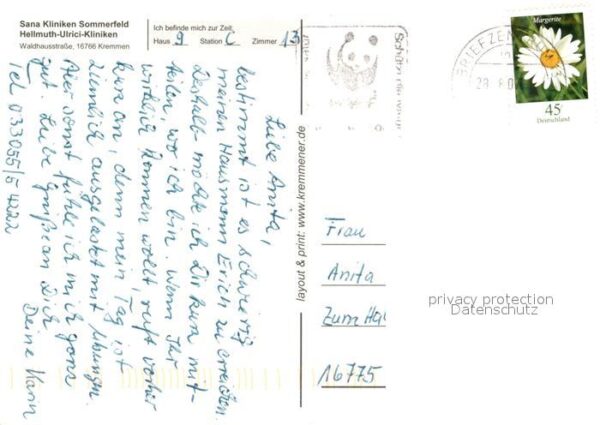 Sana Kliniken Sommerfeld
Hellmuth-Ulrici-Kliniken
Waldhausstraße, 16766 Kremmen
Ich befinde mich zur Zeit
Haus 9 Station C Zimmer 13
Liebe Anita,
bestimmt ist es schwierig
meinen Hausmann Erich zu erreichen.
Deshalb möchte ich Dir kurz mit-
teilen, wo ich bin. Wenn Ihr
wirklich kommen wollt, ruft vorher
kurz an, denn mein Tag ist
ziemlich ausgelastet mit Übungen.
Aber sonst fühle ich mich ganz
gut. Liebe Grüße an Dich
Deine Karin
Tel 033055/5 4222
layout & print: www.kremmener.de
BRIEFZEN
Margerite
45
Deutschland
Frau
Anita
Zum
16775
privacy protection
Datenschutz